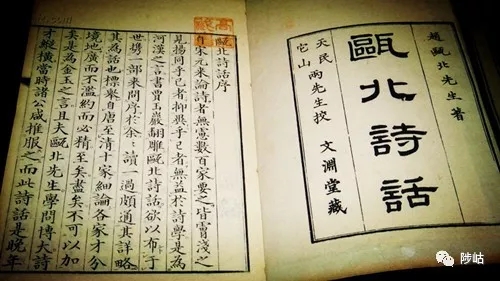 趙甌北先生著
甌北詩話
天民
宅山
兩先生校
文淵堂藏
甌北詩話序
自宋元來論詩者無慮數百家要之皆膚淺之
見揚同乎己者抑異乎己者無益於詩學是為
河漢之言書賈玉巖翻雕甌北詩話欲以布于
世携一部来問序於余讀一過頗通其詳略
其為話也標舉自唐至清十家細論各家才分
境地廣而不濫約而必精至矣盡矣不可以加
矣是為金玉之言且夫甌北先生學問博大詩
才縱橫當時諸公咸推服之而此詩話是晚年
陟岵